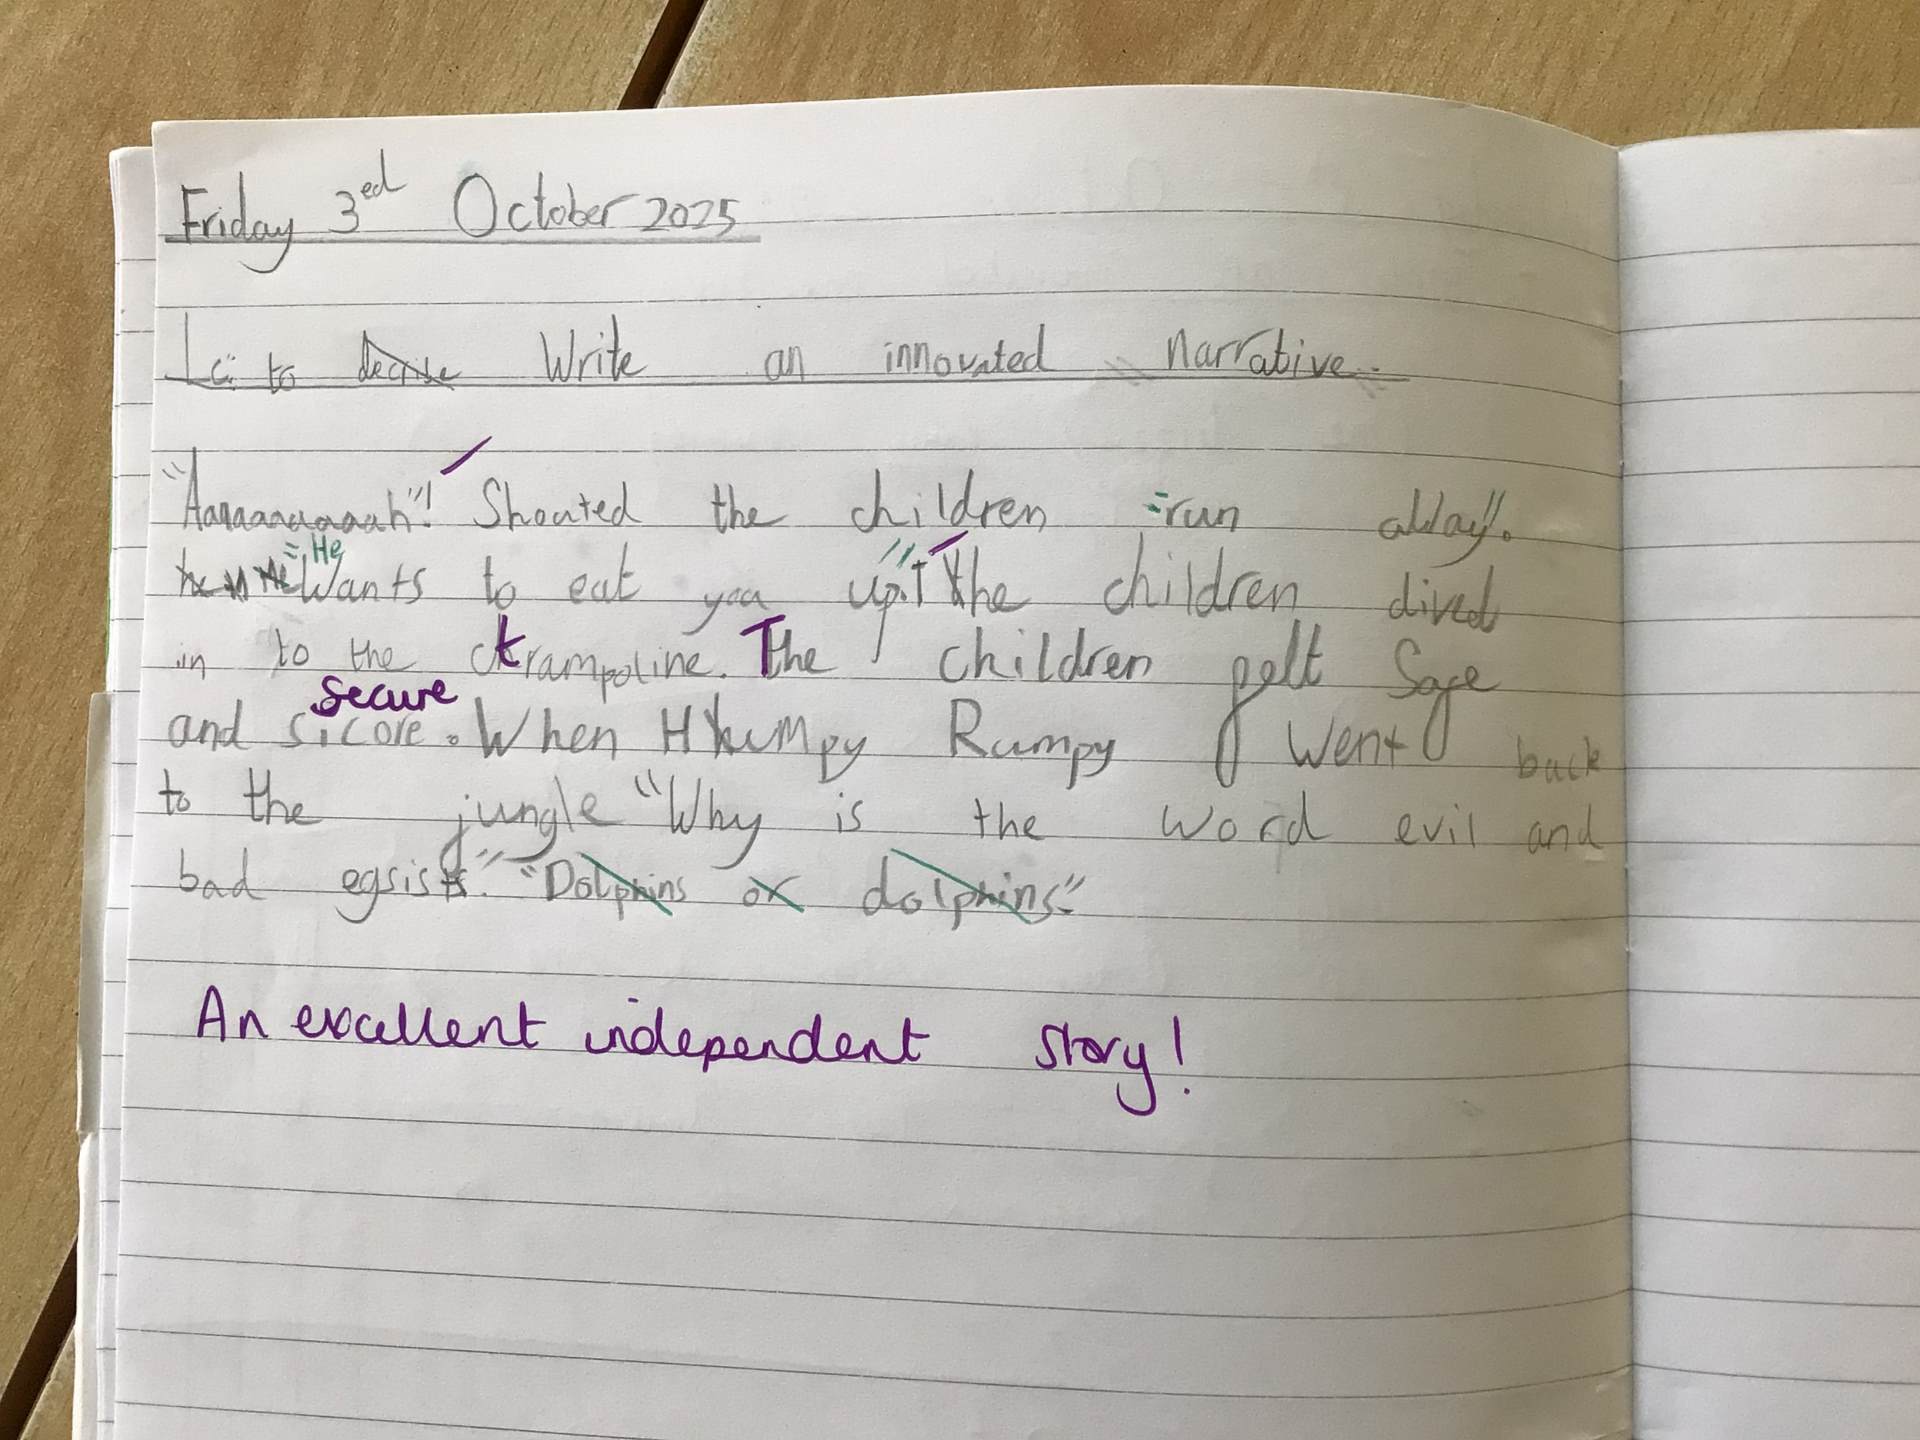 Friday 3ed October 2025
Lc: to Write an innovated narrative.
"Aaaaaaaaaah"! Shouted the children "run away".
"He Wants to eat you up." The children dived
in to the trampoline. The children pelt Safe
secure
and sicore. When Humpy Rumpy Went back
to the jungle "Why is the word evil and
bad egsists." "Dolphins or dolphins."
An excellent independent story!